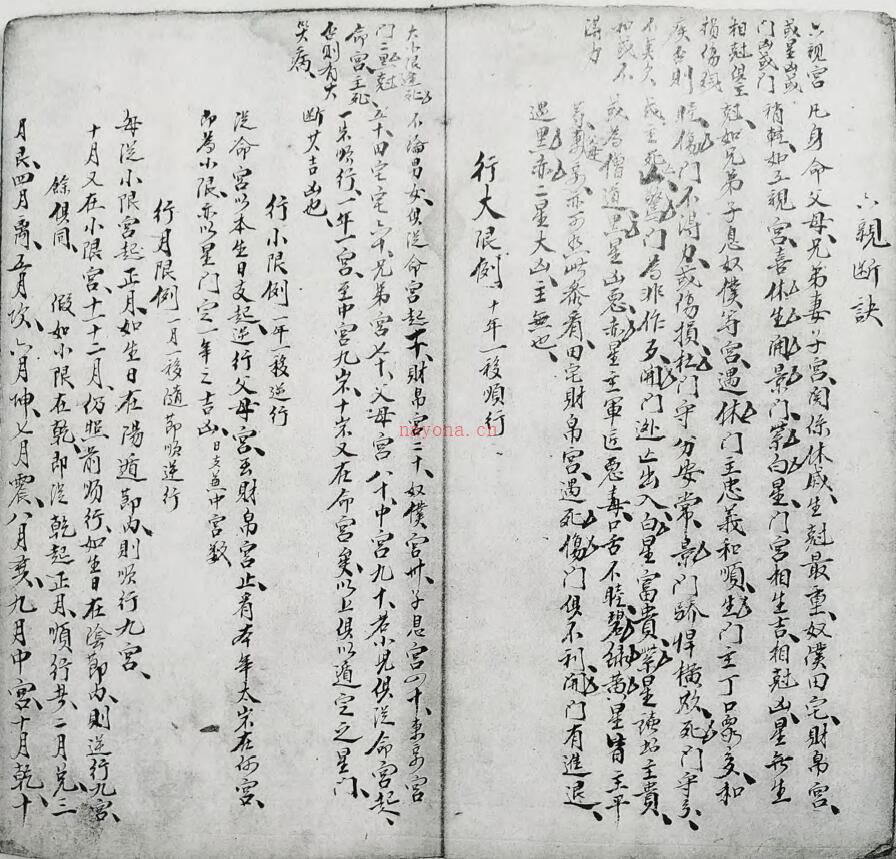 六親断訣
六親宮 凡身命父母兄弟妻子宮関係休戚生尅最重奴僕田宅財帛宮
稍軽如五親宮喜休生開景門紫白星門宮相生吉相尅凶星無生
尅如兄弟子息奴僕等宮遇休門主忠義和順生門主丁口眾多和
睦傷門不得力或傷損杜門守分安常景門驕悍橫死門守
或主死驚門為非作歹開門逃亡出入白星富貴紫星主貴
或為僧道黒星凶惡赤星主軍匠惡毒口舌不睦碧緑黄星皆主平
等看亦可然此参看田宅財帛宮遇死傷門俱不利開門有進退
遇黒赤二星大凶主無也
或星凶或
門凶或門
相尅俱主
損傷殘
疾否則
不
和或不
得力
行大限例 十年一移順行
不論男女俱從命宮起一十財帛宮二十奴僕宮卅子息宮四十妻宮
五十田宅宅六十兄弟宮七十父母宮八十中宮九十若小児俱從命宮起
一岁順行一年一宮至中宮九岁十岁又在命宮矣以上俱以遁定之星門
断其吉凶也
大小限逢死
門二黒尅
命宮主死
否則有大
災病
行小限例 一年一移逆行
從命宮以本生日支起逆行父母宮至財帛宮止看本年太岁在何宮
即為小限亦以星門定一年之吉凶 中宮数
行月限例 一月一移随節順逆行
每從小限宮起正月如生日在陽遁節内則順行九宮
十月又在小限宮十一十二月仍照前順行如生日在陰節内則逆行九宮
餘俱同 假如小限在乾即從乾起正月順行 二月兌三
月艮四月离五月坎六月坤七月震八月巽九月中宮十月乾十
nayona.cn